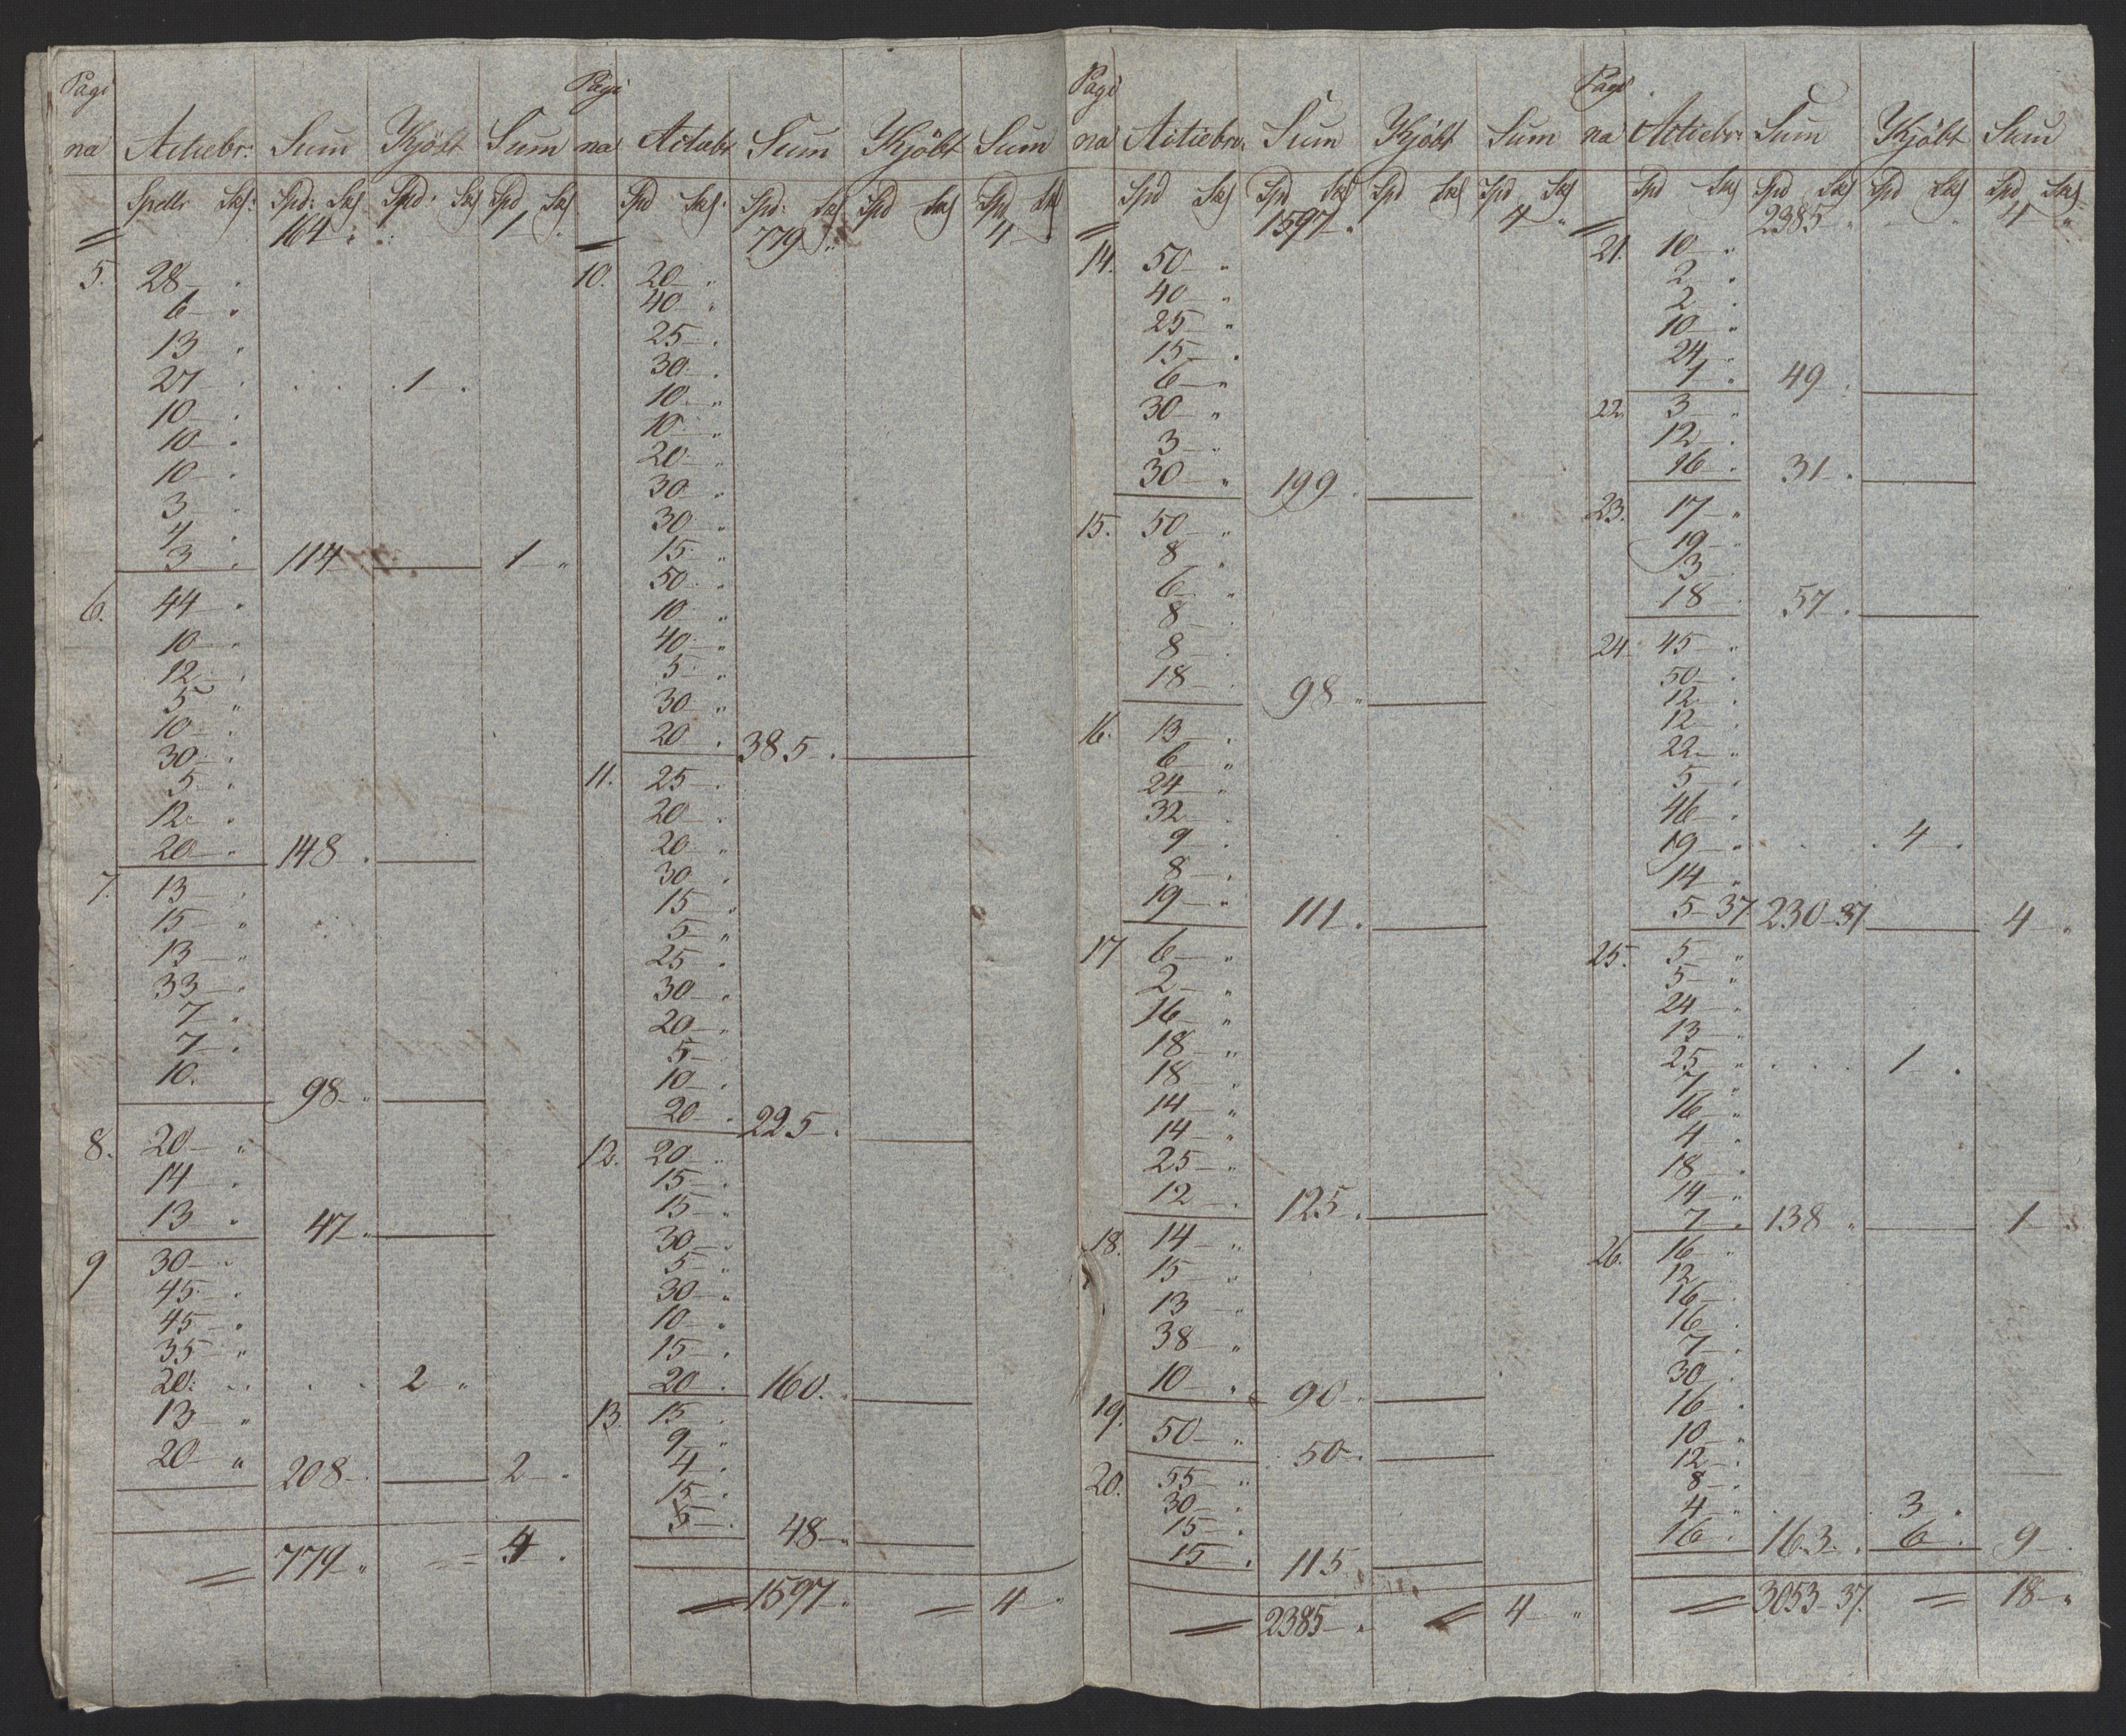 Pagina Actiebr: Sum Kjöbt Sum
Spdlr Sk: Spd: Sk Spd: Sk Spd Sk
= 164 " 1 "
5. 28 "
6 "
13 "
27 " . . . 1 "
10 "
10 "
10 "
3 "
4 "
3 " 114 — 1 "
6. 44 "
10 "
12 "
5 "
10 "
30 "
5 "
12 "
20 " 148 " —
7. 13 "
15 "
13 "
33 "
7 "
7 "
10. 98 " —
8. 20 "
14 "
13 " 47 " —
9 30 "
45 "
45 "
35 "
20 " . . . 2 "
13 "
20 " 208 " — 2 "
= 779 " = 4 "
Pagina Actiebr Sum Kjöbt Sum
Spd Sk: Spd: Sk Spd Sk Spd Sk
= 779 " 4 "
10. 20 "
40 "
25 "
30 "
10 "
10 "
20 "
30 "
30 "
15 "
50 "
10 "
40 "
5 "
30 "
20 " 385 " —
11. 25 "
20 "
20 "
30 "
15 "
5 "
25 "
30 "
20 "
5 "
10 "
20 " 225 " —
12. 20 "
15 "
15 "
30 "
5 "
30 "
10 "
15 "
20 " 160 " —
13. 15 "
9 "
4 "
15 "
5 " 48 " —
= 1597 " = 4 "
Pagina Actiebr: Sum Kjöbt Sum
Spd Sk Spd Sk Spd Sk Spd Sk
= 1597 " 4 "
14. 50 "
40 "
25 "
15 "
6 "
30 "
3 "
30 " 199 " —
15. 50 "
8 "
6 "
8 "
8 "
18 " 98 " —
16. 13 "
6 "
24 "
32 "
9 "
8 "
19 " 111 " —
17 6 "
2 "
16 "
18 "
18 "
14 "
14 "
25 "
12 " 125 " —
18. 14 "
15 "
13 "
38 "
10 " 90 " —
19. 50 " 50 " —
20. 55 "
30 "
15 "
15 " 115 —
= 2385 " = 4 "
Pagina Actiebr: Sum Kjöbt Sum
Spd Sk Spd Sk Spd Sk Spd Sk
= 2385 " 4 "
21. 10 "
2 "
2 "
10 "
24 "
1 " 49 " —
22. 3 "
12 "
16 " 31 " —
23. 17 "
19 "
3
18 " 57 " —
24. 45 "
50 "
12 "
12 "
22 "
5 "
46 "
19 " . . . 4 "
14 "
5 - 37 230 - 37 — 4 "
25. 5 "
5 "
24 "
13 "
25 " . . . 1 "
7 "
16 "
4 "
18 "
14 "
7 " 138 " — 1
26. 16 "
12
16 "
16 "
7 "
30 "
16 "
10 "
12 "
8 "
4 " . 3 "
16 " 163 " 6 " 9
= 3053 - 37. = 18 "